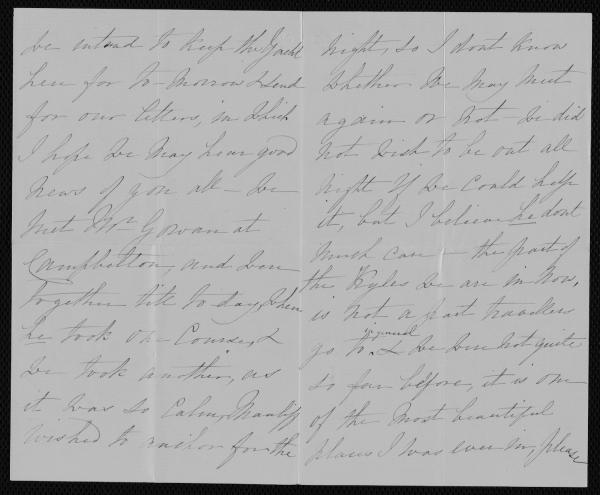 we intend to keep the Yacht
here for to-morrow & send
for our letters, in which
I hope we may hear good
news of you all - we
met Mr Gowan at
Campbelton, and were
together till to day, when
he took one Course, &
we took another, as
it was so Calm,
wished to anchor for the
night, so I dont know
whether we may meet
again or not - we did
not wish to be out all
night if we could help
it, but I believe he dont
much care - the part of
the Kyles we are in now,
is not a part travellers
go to & we were not quite
so far before, it is one
of the most beautiful
places I was ever in, please